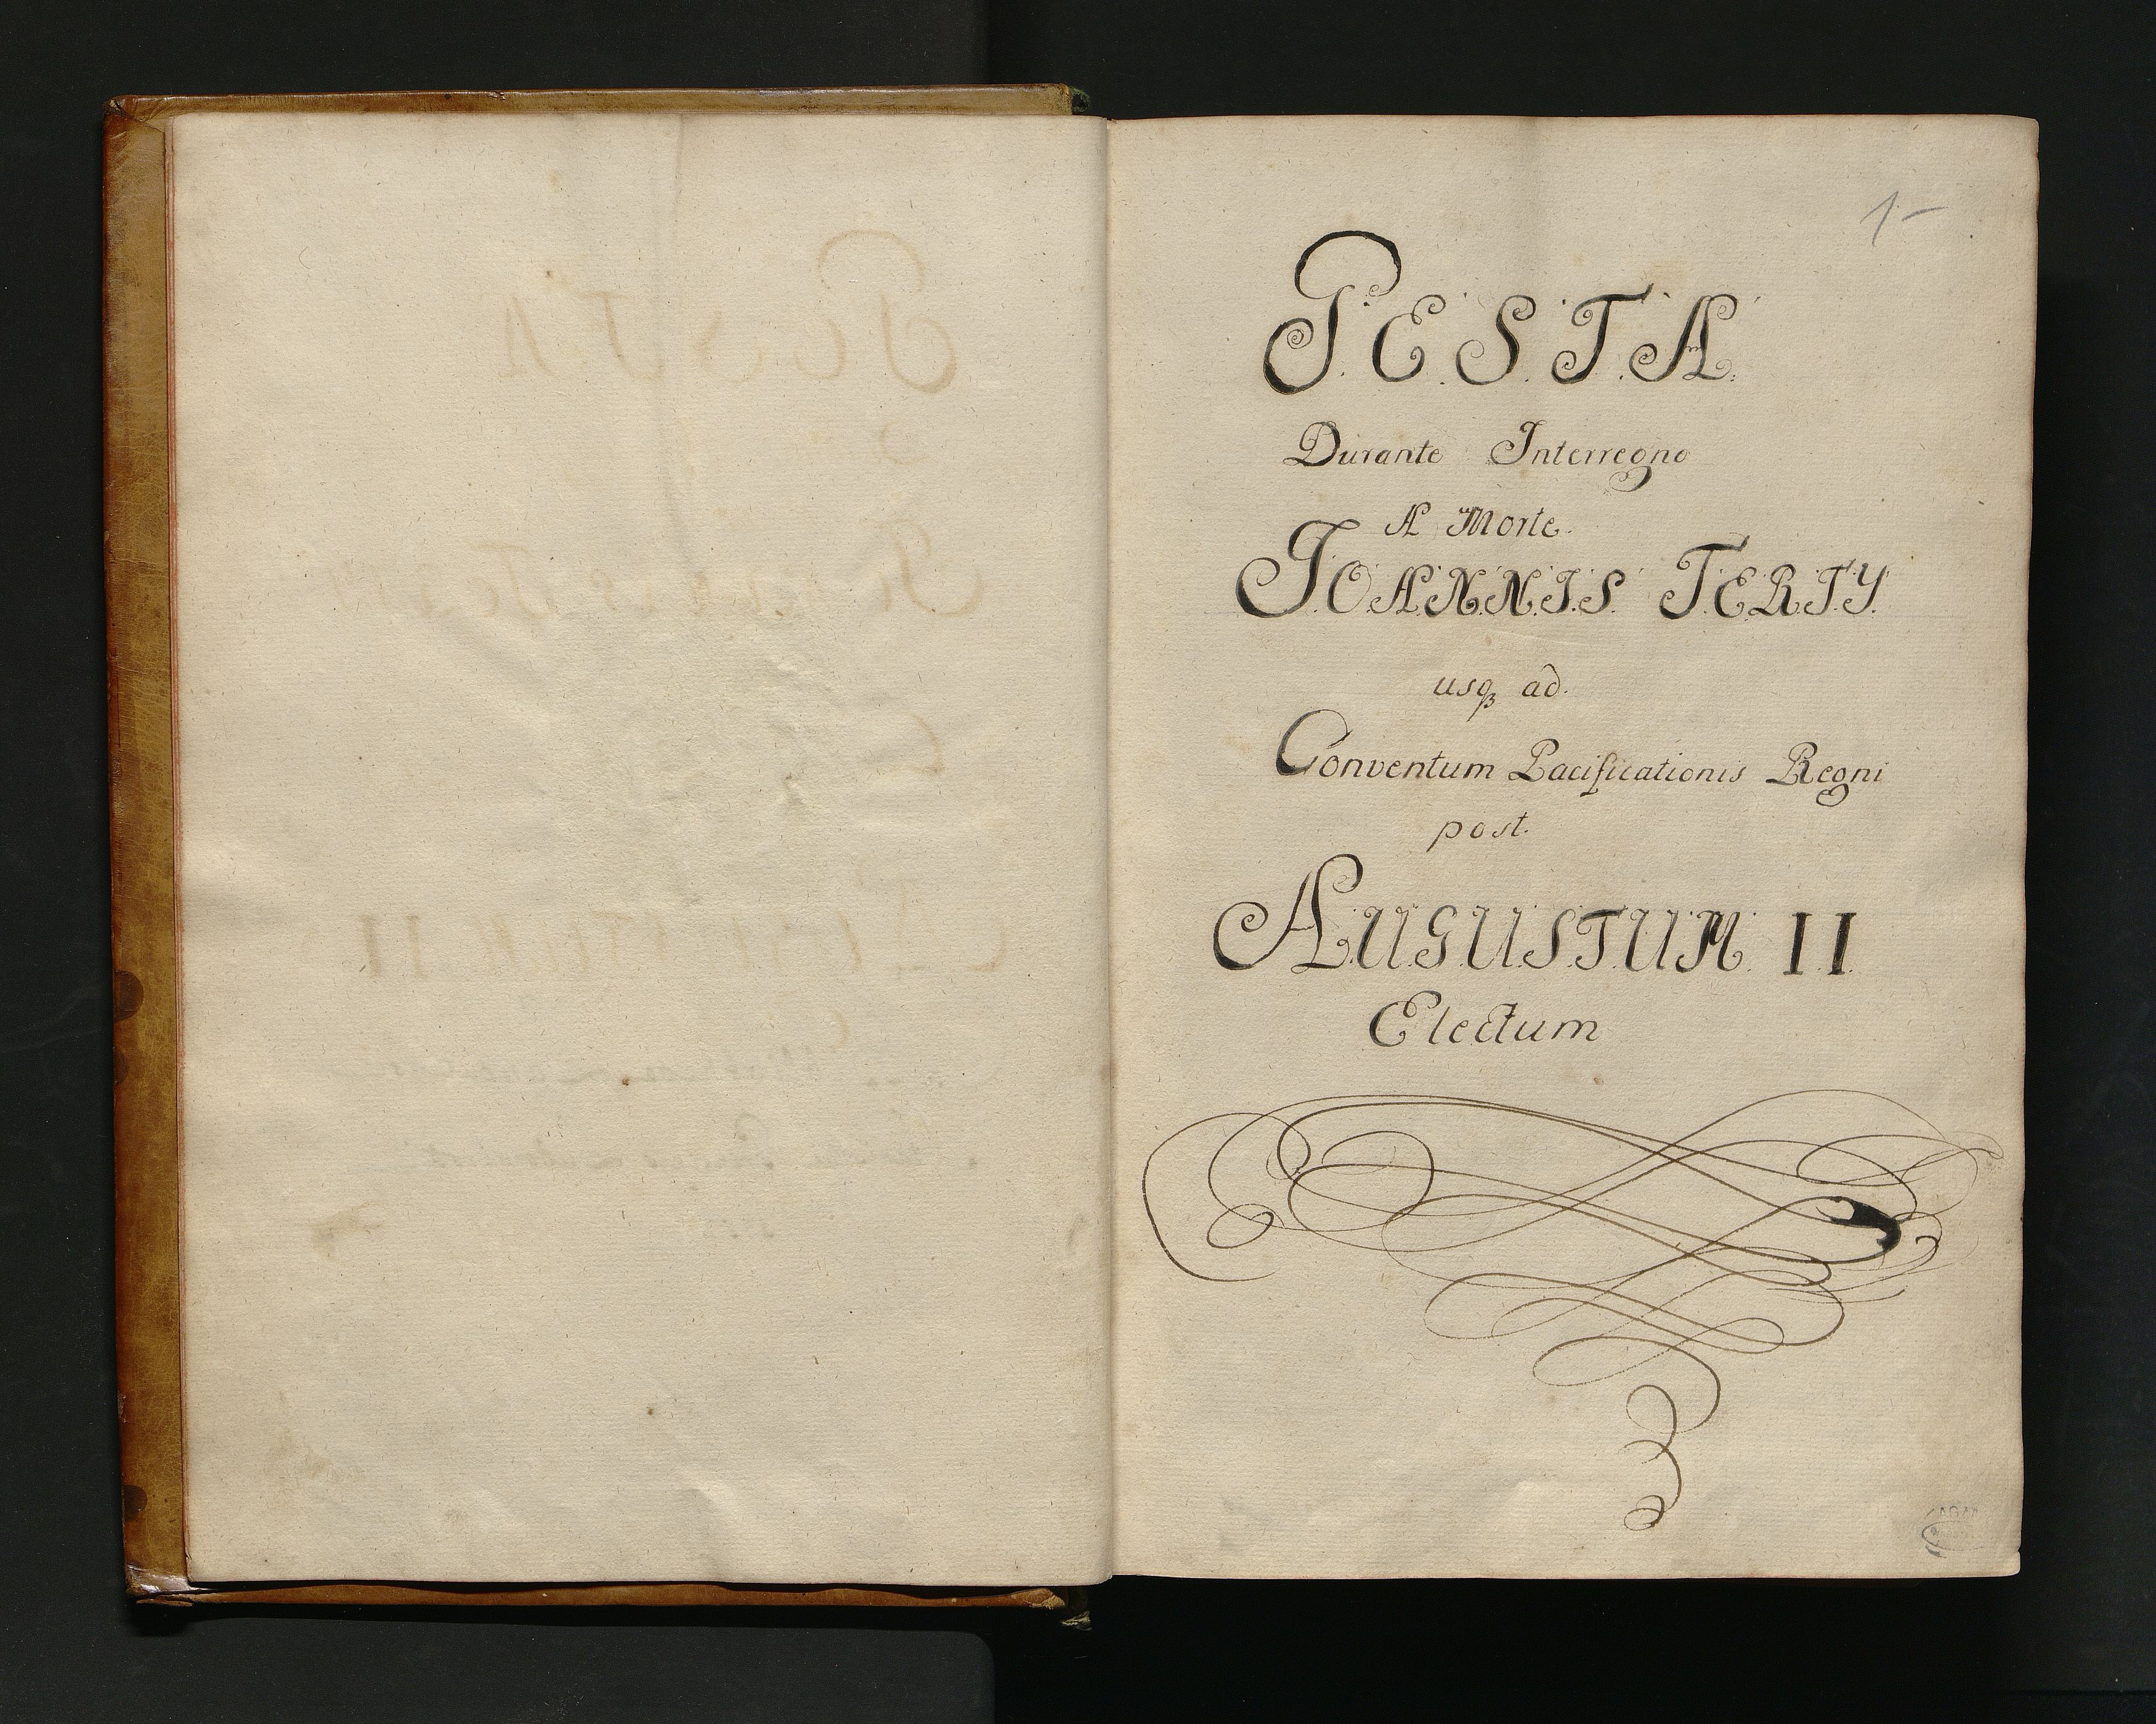 1-
G.E.S.T.A.
Durante Interregno
A Morte.
JOANNIS TERTY.
usqꝫ ad.
Conventum Pacificationis Regni
post.
AUGUSTUM II.
Electum